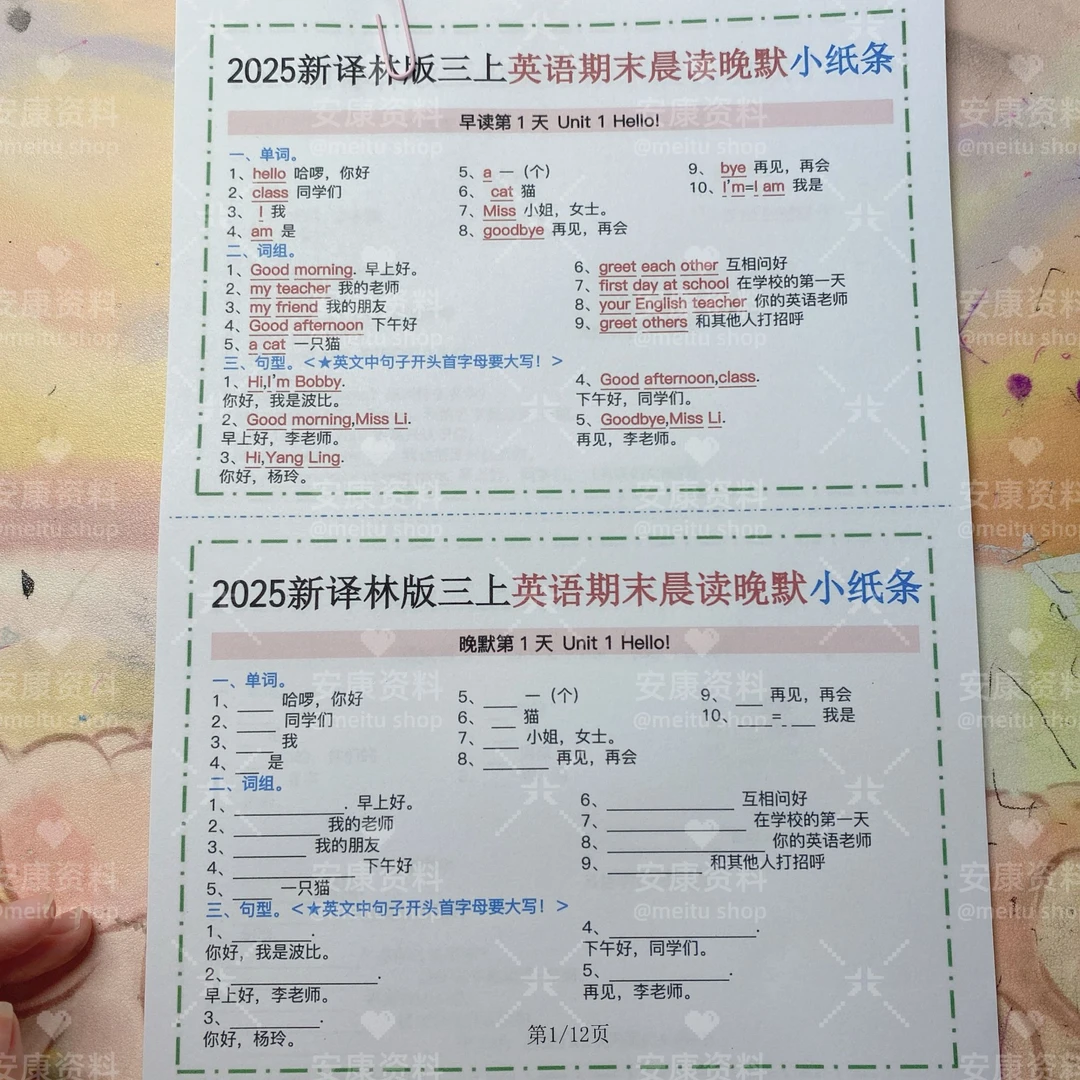 2025新译林版三上英语期末晨读晚默小纸条
早读第1天 Unit 1 Hello!
一、单词。
1、hello 哈啰，你好
2、class 同学们
3、I 我
4、am 是
5、a 一（个）
6、cat 猫
7、Miss 小姐，女士。
8、goodbye 再见，再会
9、bye 再见，再会
10、I'm=I am 我是
二、词组。
1、Good morning. 早上好。
2、my teacher 我的老师
3、my friend 我的朋友
4、Good afternoon 下午好
5、a cat 一只猫
6、greet each other 互相问好
7、first day at school 在学校的第一天
8、your English teacher 你的英语老师
9、greet others 和其他人打招呼
三、句型。＜★英文中句子开头首字母要大写！＞
1、Hi,I'm Bobby.
你好，我是波比。
2、Good morning,Miss Li.
早上好，李老师。
3、Hi,Yang Ling.
你好，杨玲。
4、Good afternoon,class.
下午好，同学们。
5、Goodbye,Miss Li.
再见，李老师。
2025新译林版三上英语期末晨读晚默小纸条
晚默第1天 Unit 1 Hello!
一、单词。
1、____ 哈啰，你好
2、____ 同学们
3、____ 我
4、___ 是
5、____ 一（个）
6、____ 猫
7、____ 小姐，女士。
8、________ 再见，再会
9、___ 再见，再会
10、___=___ 我是
二、词组。
1、_____________. 早上好。
2、__________ 我的老师
3、_________ 我的朋友
4、_______________ 下午好
5、_____一只猫
6、_______________ 互相问好
7、________________ 在学校的第一天
8、__________________ 你的英语老师
9、___________ 和其他人打招呼
三、句型。＜★英文中句子开头首字母要大写！＞
1、__________.
你好，我是波比。
2、_________________.
早上好，李老师。
3、___________.
你好，杨玲。
4、_________________.
下午好，同学们。
5、______________.
再见，李老师。
第1/12页
安康资料
@meitu shop